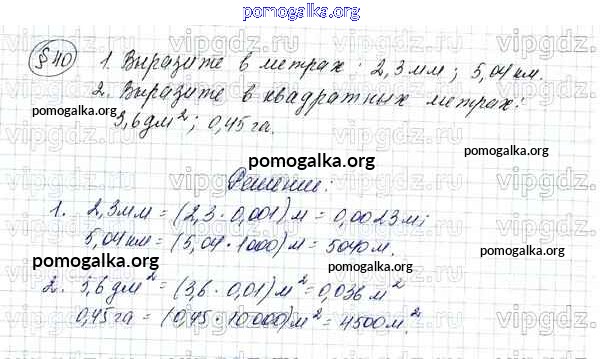 pomogalka.org
§40 1. Выразите в метрах: 2,3 мм; 5,04 км.
2. Выразите в квадратных метрах:
3,6 дм²; 0,45 га.
pomogalka.org
pomogalka.org
pomogalka.org
Решение:
1. 2,3 мм = (2,3 · 0,001) м = 0,0023 м;
5,04 км = (5,04 · 1000) м = 5040 м.
pomogalka.org
pomogalka.org
2. 3,6 дм² = (3,6 · 0,01) м² = 0,036 м²
0,45 га = (0,45 · 10000) м² = 4500 м².
pomogalka.org